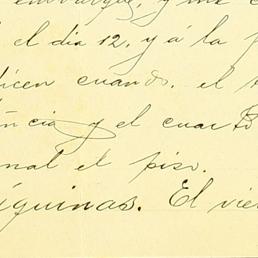 embargue, y me c
el dia 12, y á la p
dicen cuando, el
ncia y el cuarto
onal el piso.
quinas. El vie